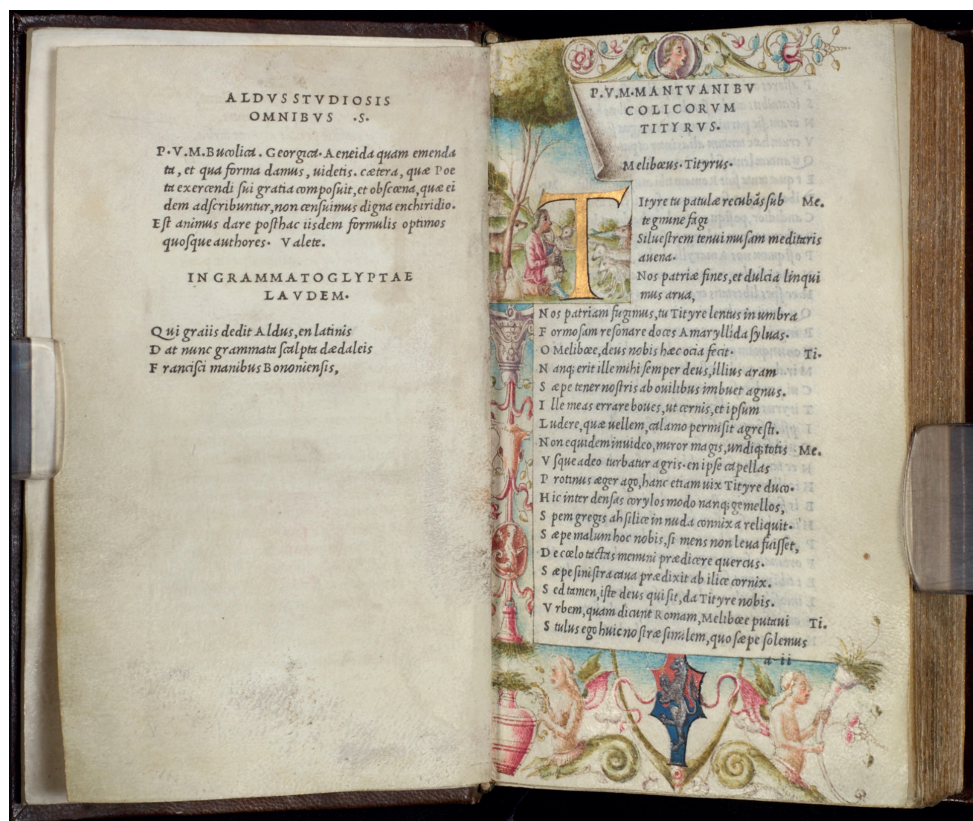 ALDVS STVDIOSIS
OMNIBVS ·S·
P·V·M·Bucolica. Georgica. Aeneida quam emenda
ta, et qua forma damus, uidetis. cætera, quæ Poe
ta exercendi sui gratia composuit, et obscœna, quæ ei
dem adscribuntur, non censuimus digna enchiridio.
Est animus dare posthac iisdem formulis optimos
quosque authores. Valete.
IN GRAMMATOGLYPTAE
LAVDEM.
Qui graiis dedit Aldus, en latinis
Dat nunc grammata scalpta dædaleis
Francisci manibus Bononiensis,
P.V.M. MANTVANI BV
COLICORVM
TITYRVS.
Melibœus. Tityrus.
Ityre tu patulæ recubãs sub Me.
tegmine fagi
Siluestrem tenui musam meditaris
auena.
Nos patriæ fines, et dulcia linqui
mus arua,
Nos patriam fugimus, tu Tityre lentus in umbra
Formosam resonare doces Amaryllida syluas.
O Melibœe, deus nobis hæc ocia fecit. Ti.
Nanq; erit ille mihi semper deus, illius aram
Sæpe tener nostris ab ouilibus imbuet agnus.
Ille meas errare boues, ut cernis, et ipsum
Ludere, quæ uellem, calamo permisit agresti.
Non equidem inuideo, miror magis, undiq; totis Me.
Vsque adeo turbatur agris. en ipse capellas
Protinus æger ago, hanc etiam uix Tityre duco.
Hic inter densas corylos modo nanq; gemellos,
Spem gregis ah silice in nuda connixa reliquit.
Sæpe malum hoc nobis, si mens non leua fuisset,
De cœlo tactas memini prædicere quercus.
Sæpe sinistra caua prædixit ab ilice cornix.
Sed tamen, iste deus qui sit, da Tityre nobis.
Vrbem, quam dicunt Romam, Melibœe putaui Ti.
Stulus ego huic nostræ similem, quo sæpe solemus
a ii